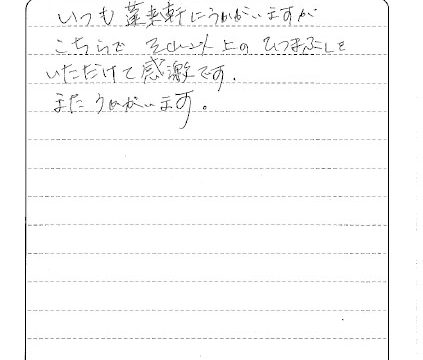 いつも蓬莱軒にうかがいますが
こちらで それ以上の ひつまぶしを
いただけて感激です.
またうかがいます。